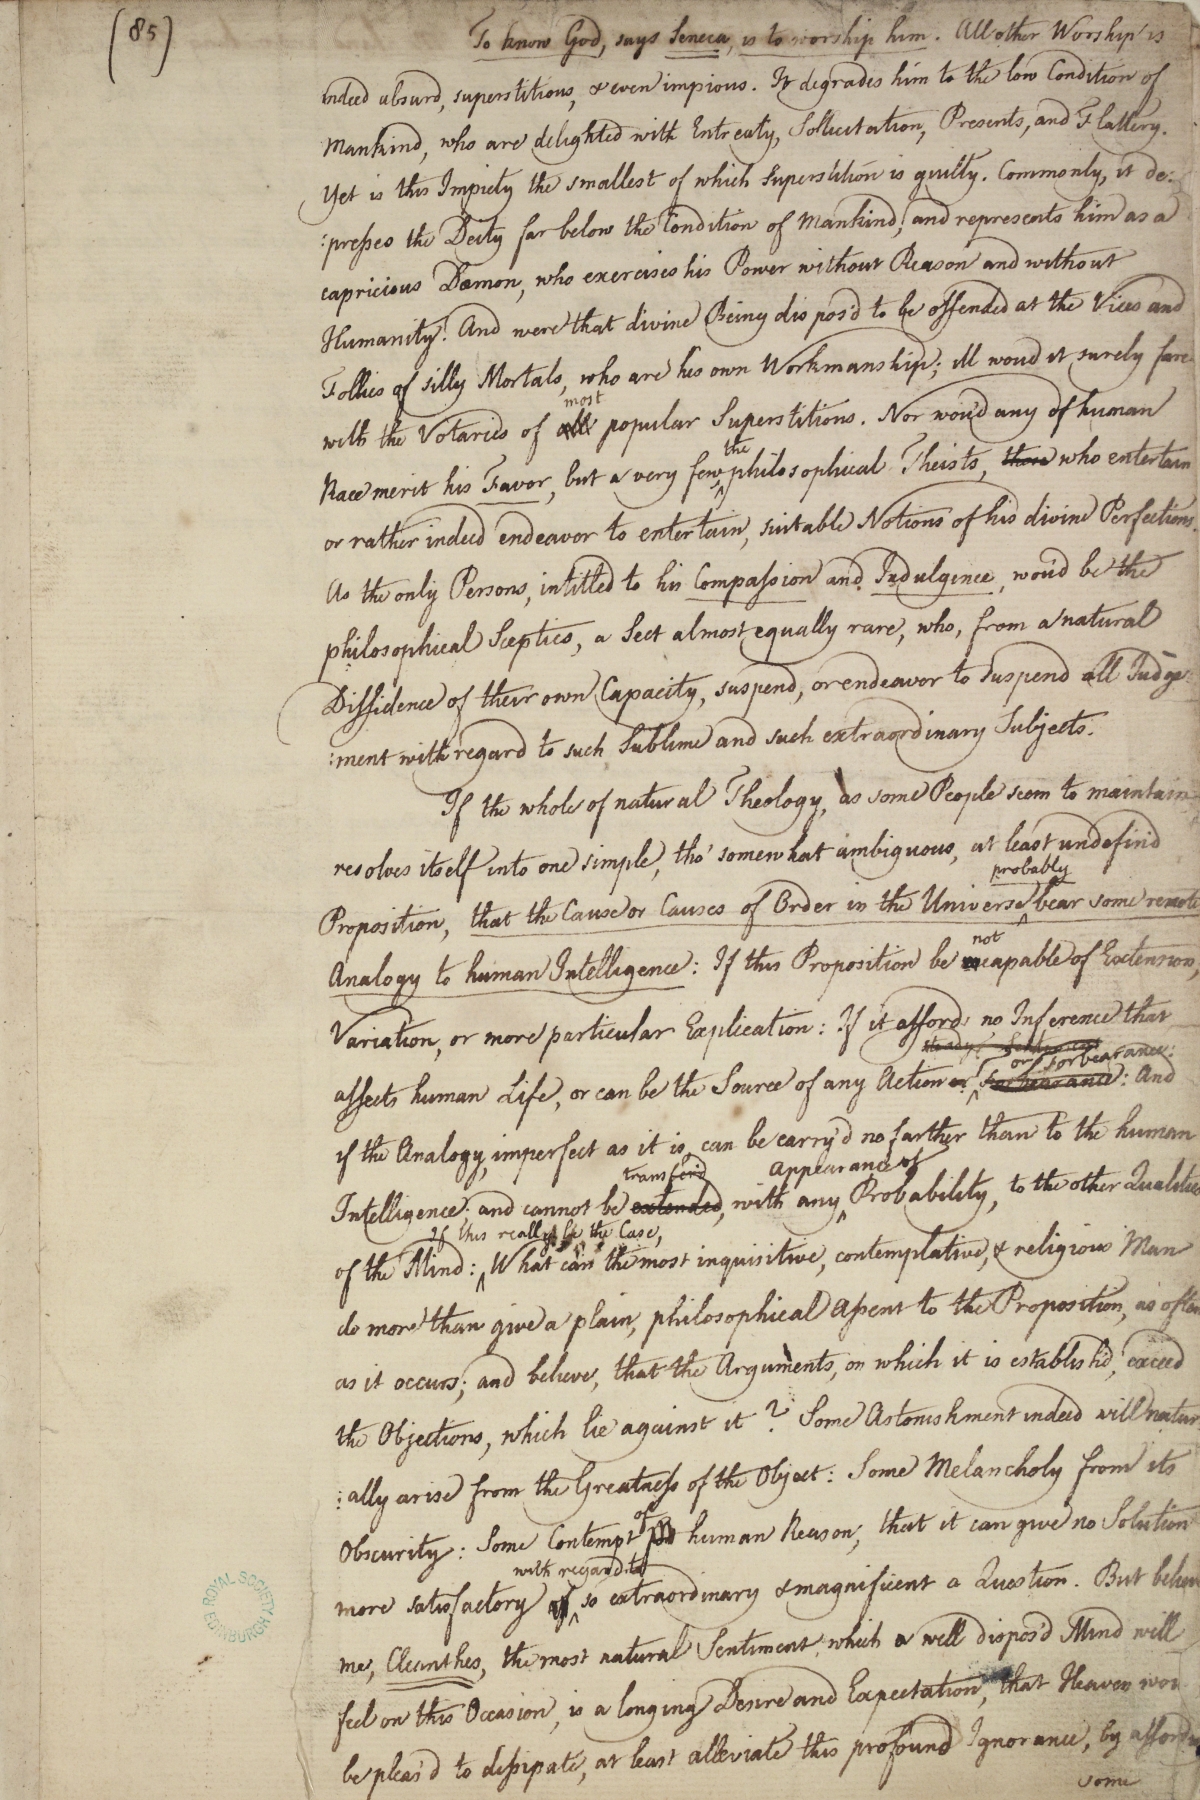 (85)
To know God, says Seneca, is to worship him. All other Worship is
indeed absurd, superstitious, & even impious. It degrades him to the low Condition of
Mankind, who are delighted with Entreaty, Sollicitation, Presents, and Flattery.
Yet is this Impiety the smallest of which Superstition is guilty. Commonly, it de:
:presses the Deity far below the Condition of Mankind, and represents him as a
capricious Dæmon, who exercises his Power without Reason and without
Humanity! And were that divine Being dispos'd to be offended at the Vices and
Follies of silly Mortals, who are his own Workmanship; ill wou'd it surely fare
most
with the Votaries of all popular Superstitions. Nor wou'd any of human
the
Race merit his Favor, but a very few philosophical Theists, those who entertain
or rather indeed endeavor to entertain, suitable Notions of his divine Perfections.
As the only Persons, intitled to his Compassion and Indulgence, wou'd be the
philosophical Sceptics, a Sect almost equally rare, who, from a natural
Diffidence of their own Capacity, suspend, or endeavor to suspend all Judge:
:ment with regard to such sublime and such extraordinary Subjects.
If the whole of natural Theology, as some People seem to maintain
resolves itself into one simple, tho' somewhat ambiguous, at least undefin'd
probably
Proposition, that the Cause or Causes of Order in the Universe bear some remote
not
Analogy to human Intelligence: If this Proposition be capable of Extension,
Variation, or more particular Explication: If it afford no Inference that
steady
or forbearance:
affects human Life, or can be the Source of any Action or forbearance: And
if the Analogy, imperfect as it is, can be carry'd no farther than to the human
transfer'd appearance of
Intelligence: and cannot be extended, with any Probability, to the other Qualities
If this really be the Case,
of the Mind: What can the most inquisitive, contemplative, & religious Man
do more than give a plain, philosophical Assent to the Proposition, as often
as it occurs; and believe, that the Arguments, on which it is establish'd, exceed
the Objections, which lie against it? Some Astonishment indeed will natur
:ally arise from the Greatness of the Object: Some Melancholy from its
of
Obscurity: Some Contempt human Reason, that it can give no Solution
with regard to
more satisfactory of so extraordinary & magnificent a Question. But believe
me, Cleanthes, the most natural Sentiment, which a well dispos'd Mind will
feel on this Occasion, is a longing Desire and Expectation, that Heaven wou
be pleas'd to dissipate, at least alleviate this profound Ignorance, by affording
some
ROYAL SOCIETY
EDINBURGH